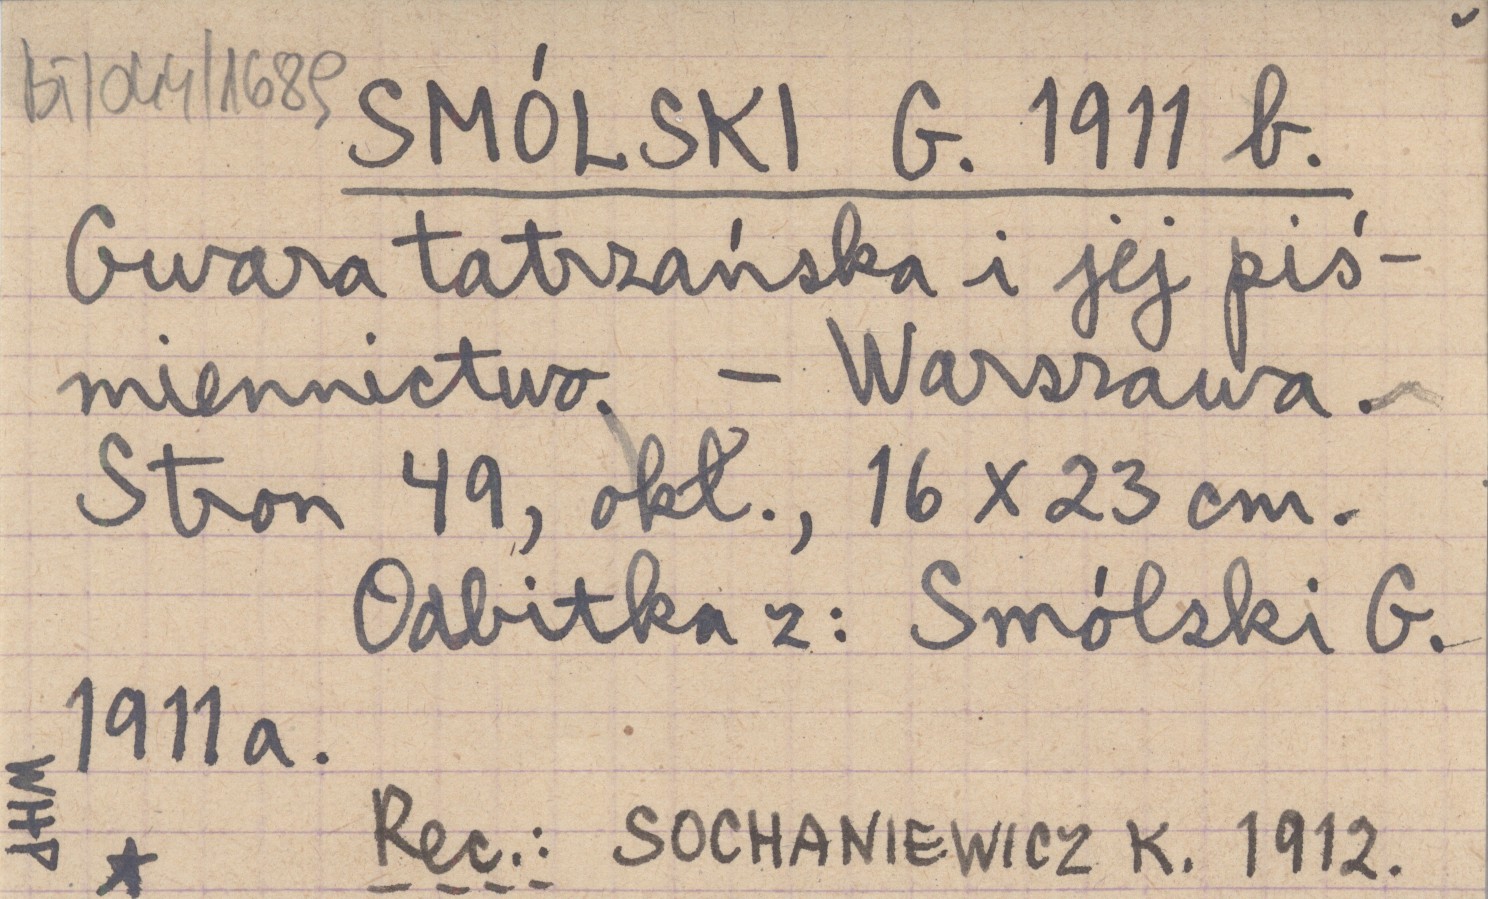 bi/044/1689
SMÓLSKI G. 1911 b.
Gwara tatrzańska i jej piś-
miennictwo. - Warszawa.
Stron 49, okł., 16 x 23 cm.
Odbitka z: Smólski G.
1911a.
WHP
Rec.: SOCHANIEWICZ K. 1912.